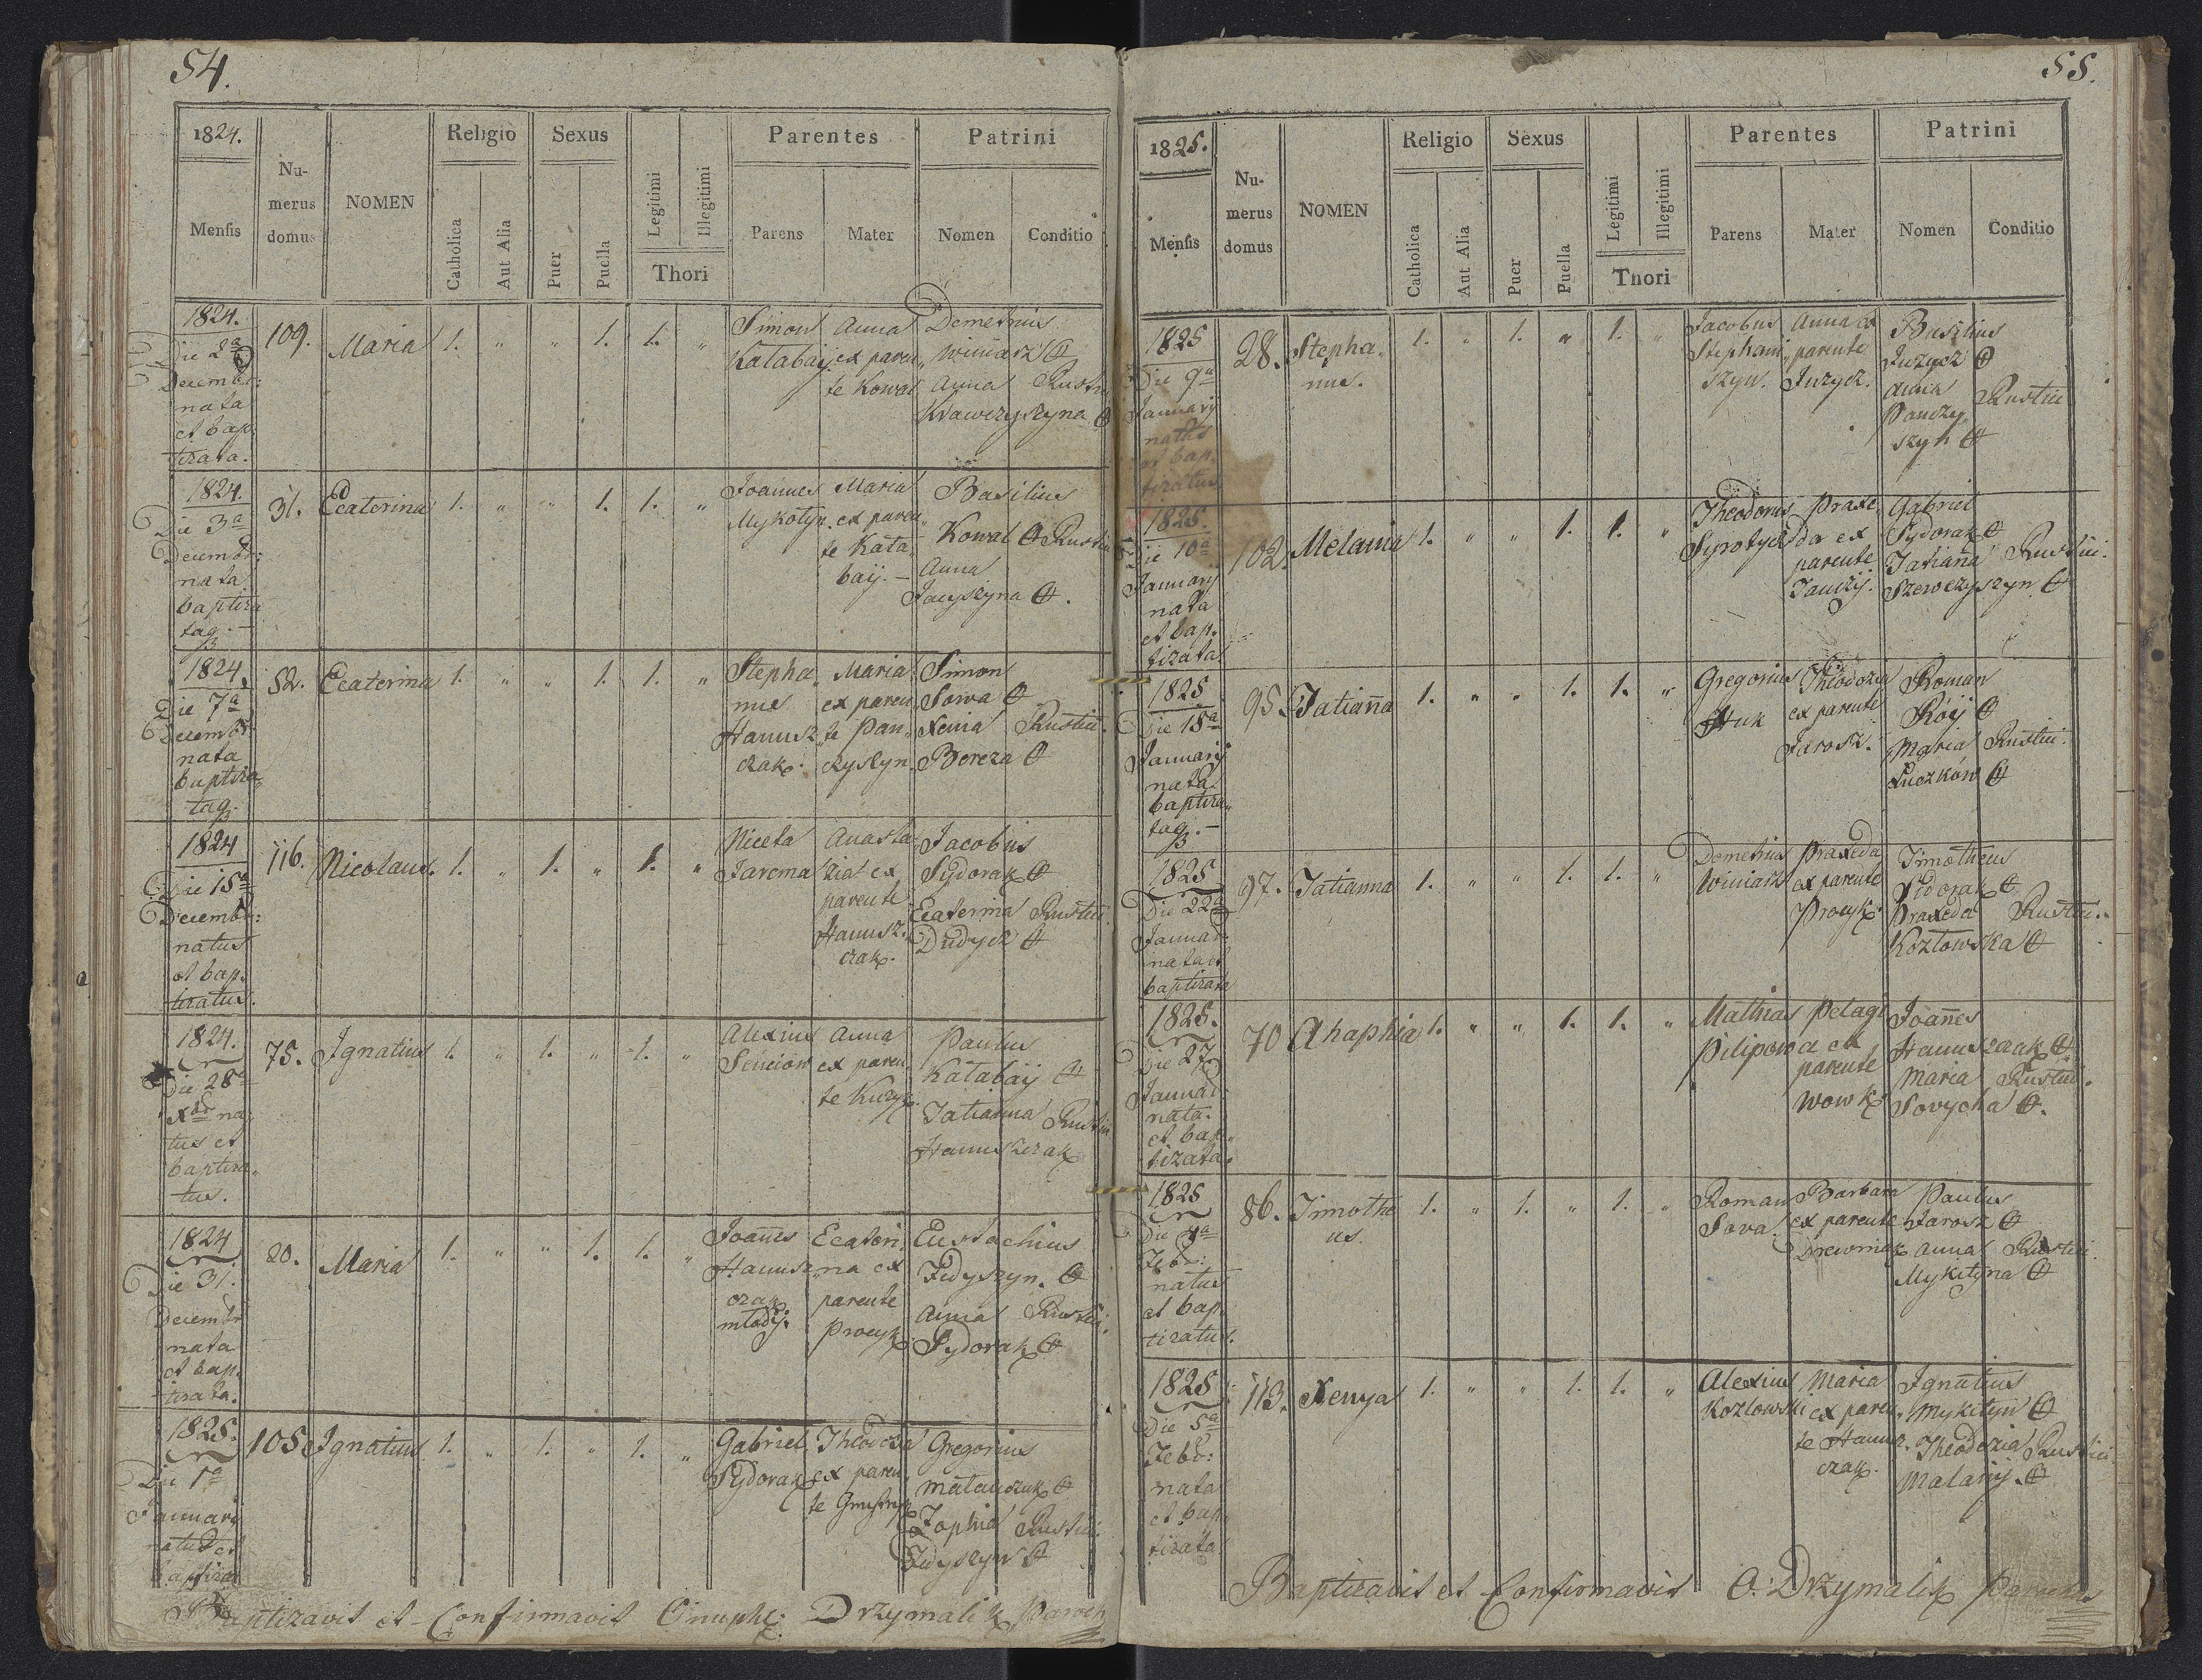 54.
1824.
Mensis
Nu-
merus
domus
NOMEN
Religio
Catholica
Aut Alia
Sexus
Puer
Puella
Legitimi
Illegitimi
Thori
Parentes
Parens
Mater
Patrini
Nomen
Conditio
1824.
Die 2a
Decembr:
nata
et bap
tizata.
109.
Maria
1. " " 1. 1. "
Simon
Katabaij
Anna
ex paren
te Kowal
Demetrius
Winiarz
Anna
Krawczyszyna
Rustici
1824.
Die 3a
Decembr:
nata
baptiza
taq.
31.
Ecaterina
1. " " 1. 1. "
Joannes
Mykotyn.
Maria
ex paren
te Kata
baij.
Basilius
Kowal
Anna
Jacyszyna
Rustici
1824.
Die 7a
Decembr.
nata
baptiza
taq.
52.
Ecaterina
1. " " 1. 1. "
Stepha
nus
Hanusz
czak.
Maria
ex paren
te Pan
czyszyn.
Simon
Sowa
Xenia
Bereza
Rustici.
1824
Die 15a
Decembr:
natus
et bap.
tizatus.
116.
Nicolaus.
1. " 1. " 1. "
Niceta
Jarema
Anasta
zia ex
parente
Hanusz.
czak.
Jacobus
Sydorak
Ecaterina
Dudycz
Rustici.
1824.
Die 28a
Xbr na
tus et
baptiza
tus.
75.
Ignatius
1. " 1. " 1. "
Alexius
Senciow
Anna
ex paren
te Kuzyk.
Paulus
Katabaij
Tatianna
Hanuszczak
Rustici
1824
Die 31.
Decembr
nata
et bap.
tizata.
20.
Maria
1. " " 1. 1. "
Joannes
Hanusz
czak
mtody.
Ecateri
na ex
parente
Procyk.
Eustachius
Fedyszyn.
Anna
Sydorak
Rustici.
1825.
Die 1a
Januari
natus et
baptiza
105
Ignatius
1. " 1. " 1. "
Gabriel
Sydorak
Theodozia
ex paren
te
Gregorius
Zophia
Fedyszyn
Rustici.
Baptizavit et Confirmavit Onuph: Drzymalik Paroch
55.
1825.
Mensis
Nu-
merus
domus
NOMEN
Religio
Catholica
Aut Alia
Sexus
Puer
Puella
Legitimi
Illegitimi
Thori
Parentes
Parens
Mater
Patrini
Nomen
Conditio
1825
Die 9a
Januarij
natus
et bap.
tizatus
28.
Stepha
nus.
1. " 1. " 1. "
Jacobus
Stephani
szyn.
Anna ex
parente
Juzycz.
Basilius
Juzycz
Anna
Panczy
szyn
Rustici
1825.
Die 10a
Januarij
nata
et bap.
tizata
102.
Melania
1. " " 1. 1. "
Theodorus
Syrotycz
Praxe
da ex
parente
Gabriel
Sydorak
Tatianna
Szewczyszyn
Rustici.
1825
Die 15a
Januarij
nata
baptiza
taq.
95.
Tatianna
1. " " 1. 1. "
Gregorius
Huk
Theodozia
ex parente
Jarosz.
Roman
Roij
Maria
Luczków
Rustici.
1825
Die 22a
Januar
nata et
baptizata
97.
Tatianna
1. " " 1. 1. "
Demetrius
Winiarz
Praxeda
ex parente
Procyk.
Timotheus
Sydorak
Praxeda
Kozlowska
Rustici.
1825.
Die 27
Januar
nata
et bap
tizata.
70
Ahaphia
1. " " 1. 1. "
Mathias
Pilipow
Pelagi
a ex
parente
Wowk
Joannes
Hanuszczak
Maria
Rustici.
1825
Die 4a
Febr.
natus
et bap.
tizatus.
86.
Timothe
us.
1. " 1. " 1. "
Roman
Sava.
Barbara
ex parente
Drewniak
Paulus
Jarosz
Anna
Mykityna
Rustici.
1825
Die 5a
Febr:
nata
et bap.
tizata
113.
Xenya
1. " " 1. 1. "
Alexius
Kozlowski
Maria
ex paren
te Hanusz.
czak.
Ignatius
Mykityn
Theodozia
Malanij.
Rustici.
Baptizavit et Confirmavit O. Drzymalik Parochus